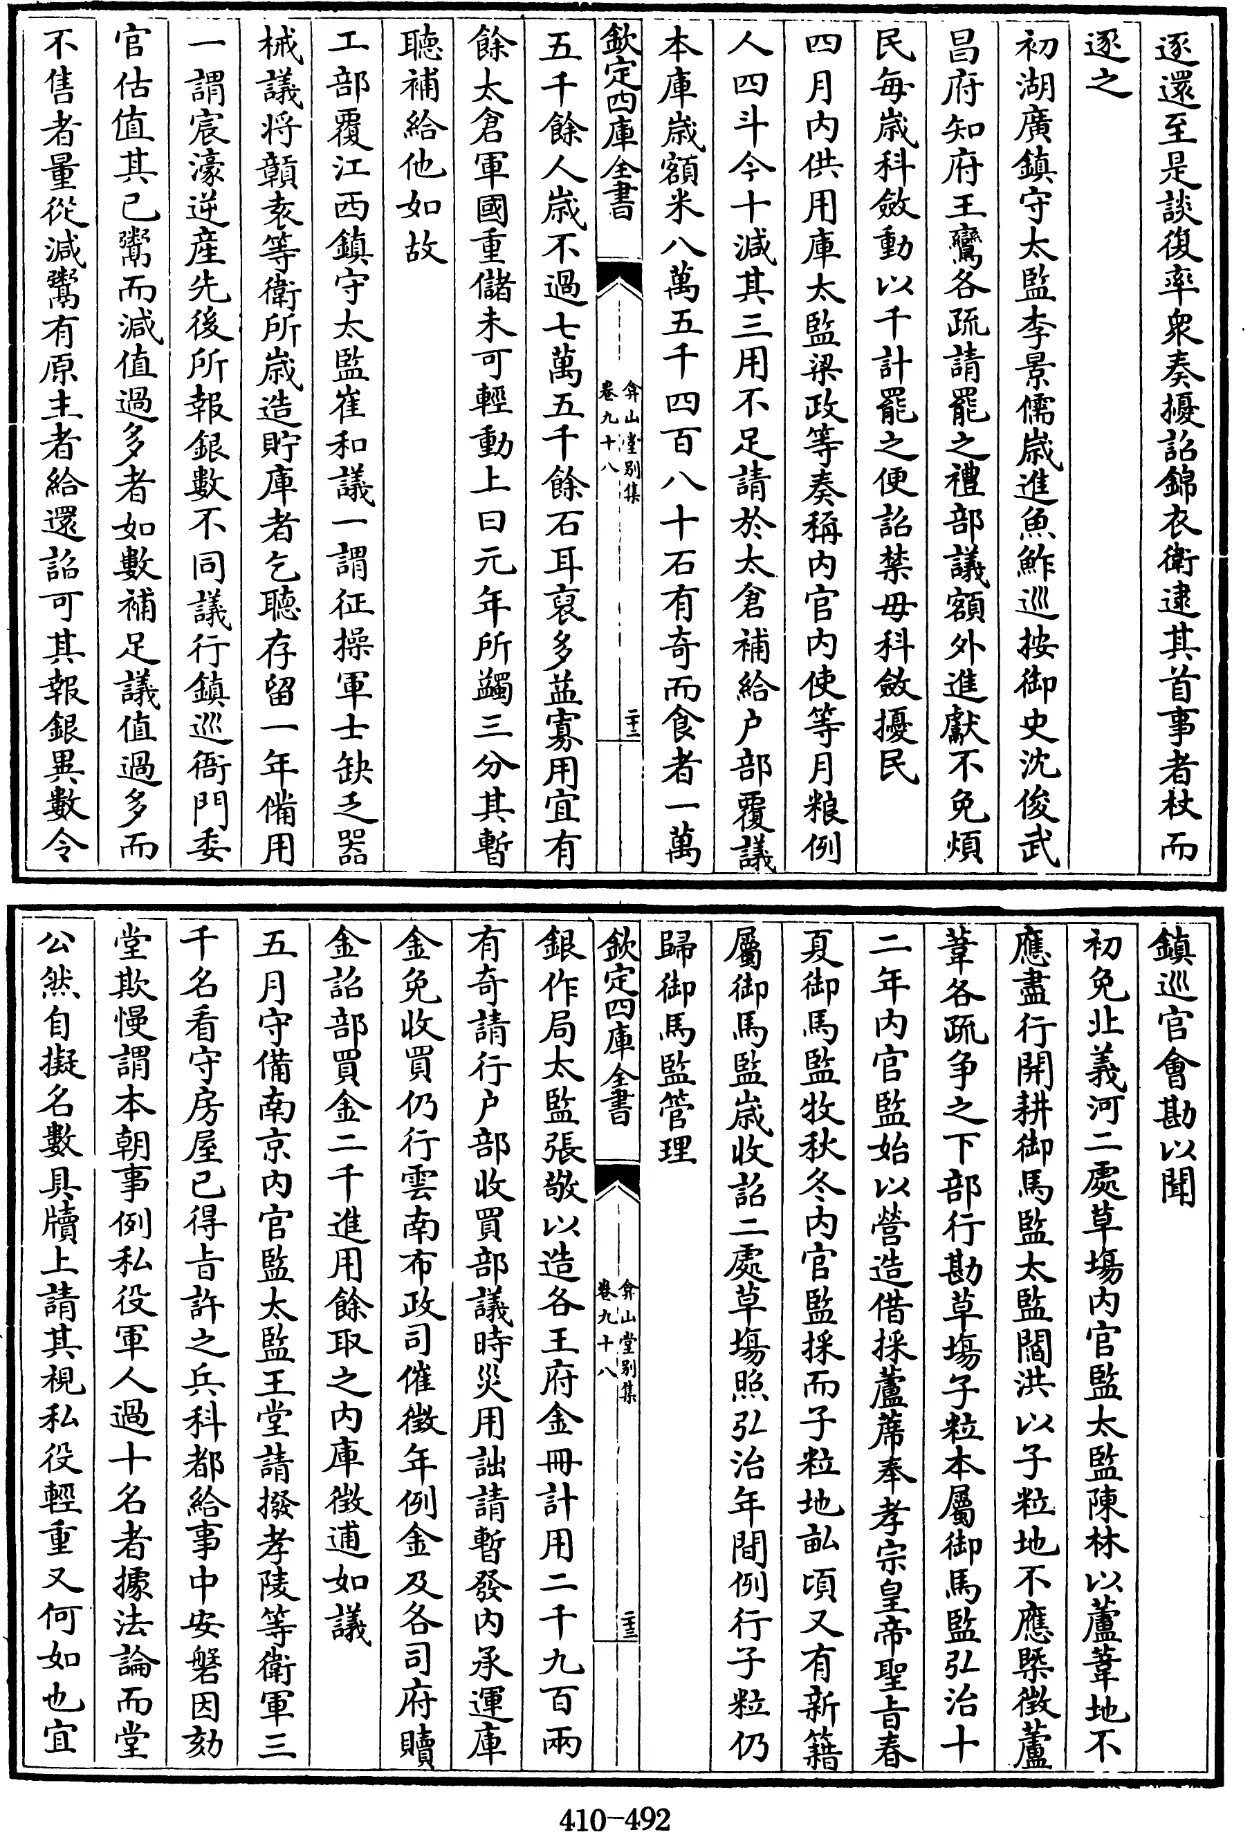 逐還至是談復率衆奏擾詔錦衣衛逮其首事者杖而
逐之
初湖廣鎮守太監李景儒歳進魚鮓巡按御史沈俊武
昌府知府王鸞各疏請罷之禮部議額外進獻不免煩
民毎歳科斂動以千計罷之便詔禁毋科斂擾民
四月内供用庫太監梁政等奏稱内官内使等月粮例
人四斗今十減其三用不足請於太倉補給户部覆議
本庫歳額米八萬五千四百八十石有奇而食者一萬
欽定四庫全書
弇山堂别集
卷九十八
二十二
五千餘人歳不過七萬五千餘石耳裒多益寡用宜有
餘太倉軍國重儲未可輕動上曰元年所蠲三分其暫
聽補給他如故
工部覆江西鎮守太監崔和議一謂征操軍士缺乏器
械議将贑袁等衛所歳造貯庫者乞聽存留一年備用
一謂宸濠逆産先後所報銀數不同議行鎮巡衙門委
官估值其已鬻而減值過多者如數補足議值過多而
不售者量從減鬻有原主者給還詔可其報銀異數令
鎮巡官會勘以聞
初免北義河二處草塲内官監太監陳林以蘆葦地不
應盡行開耕御馬監太監閻洪以子粒地不應槩徵蘆
葦各疏争之下部行勘草塲子粒本屬御馬監弘治十
二年内官監始以營造借採蘆蓆奉孝宗皇帝聖旨春
夏御馬監牧秋冬内官監採而子粒地畝頃又有新籍
屬御馬監歳收詔二處草塲照弘治年間例行子粒仍
歸御馬監管理
欽定四庫全書
弇山堂别集
卷九十八
二十三
銀作局太監張敬以造各王府金冊計用二千九百兩
有奇請行户部收買部議時災用詘請暫發内承運庫
金免收買仍行雲南布政司催徴年例金及各司府贖
金詔部買金二千進用餘取之内庫徴逋如議
五月守備南京内官監太監王堂請撥孝陵等衛軍三
千名看守房屋已得旨許之兵科都給事中安磐因劾
堂欺慢謂本朝事例私役軍人過十名者據法論而堂
公然自擬名數具牘上請其視私役輕重又何如也宜
410-492